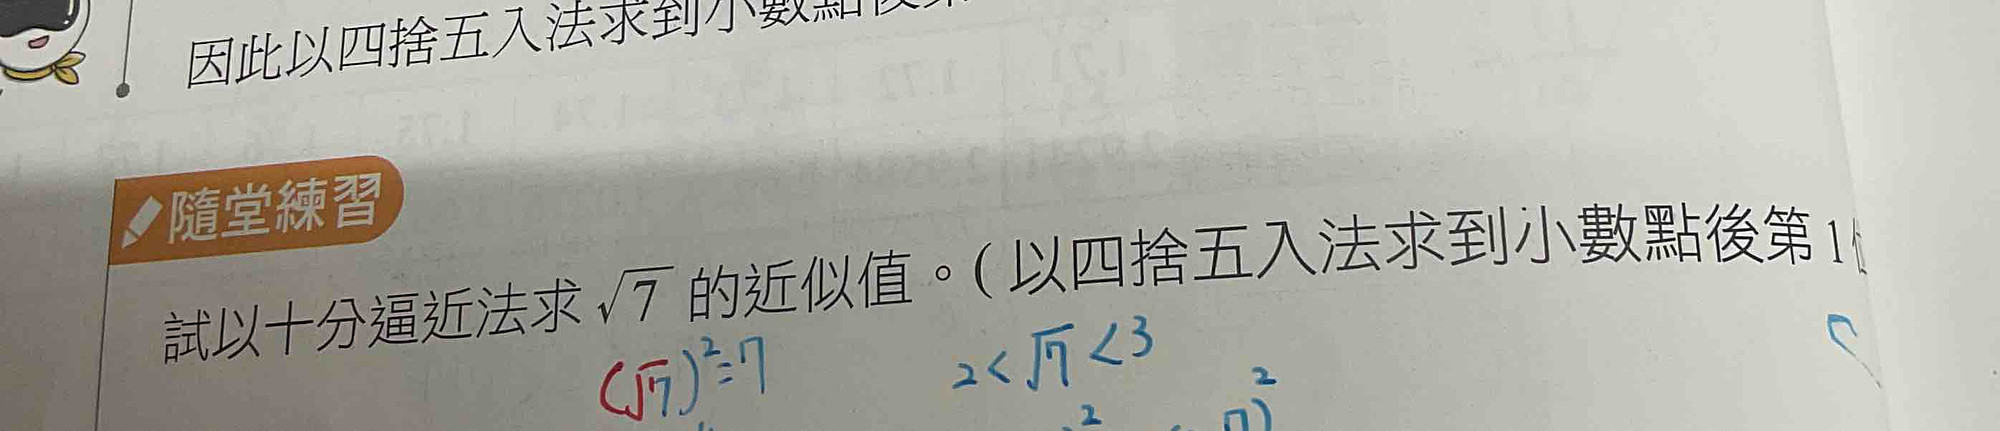 因此以四捨五入法求到小數點後第
隨堂練習
試以十分逼近法求 √7 的近似值。(以四捨五入法求到小數點後第 1 位
(√7)²=7
2<√7<3